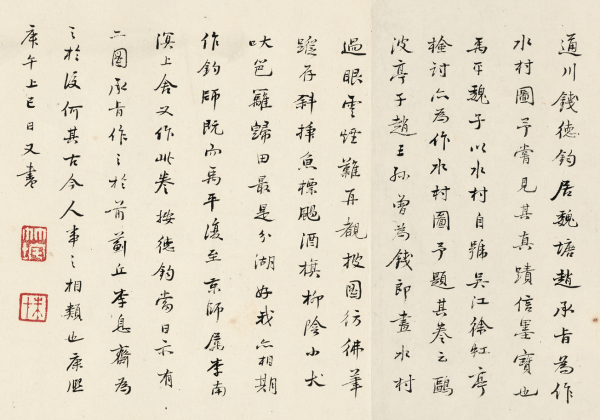 通川錢德鈞居魏塘趙承旨為作
水村圖予嘗見其真蹟信墨寶也
禹平魏子以水村自號吳江徐虹亭
檢討亦為作水村圖予題其卷云鷗
波亭子趙王孫曾為錢郎畫水村
過眼雲煙難再觀披圖彷彿筆
蹤存斜挿魚標颺酒旗柳陰小犬
吠笆籬歸田最是分湖好我亦相期
作釣師既而禹平復至京師屬李南
溟上舍又作此卷按德鈞當日亦有
二圖承旨作之於前薊丘李息齋為
之於後何其古今人事之相類也康熙
庚午上巳日又書